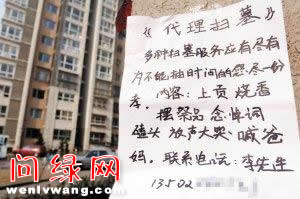 《代理扫墓》
多种扫墓服务应有尽有
为不能抽时间的您尽一份
孝。内容：上贡烧香
摆祭品念悼词
磕头放声大哭、喊爸
妈。联系电话：李先生
13502
问绿网
wenlvwang.com